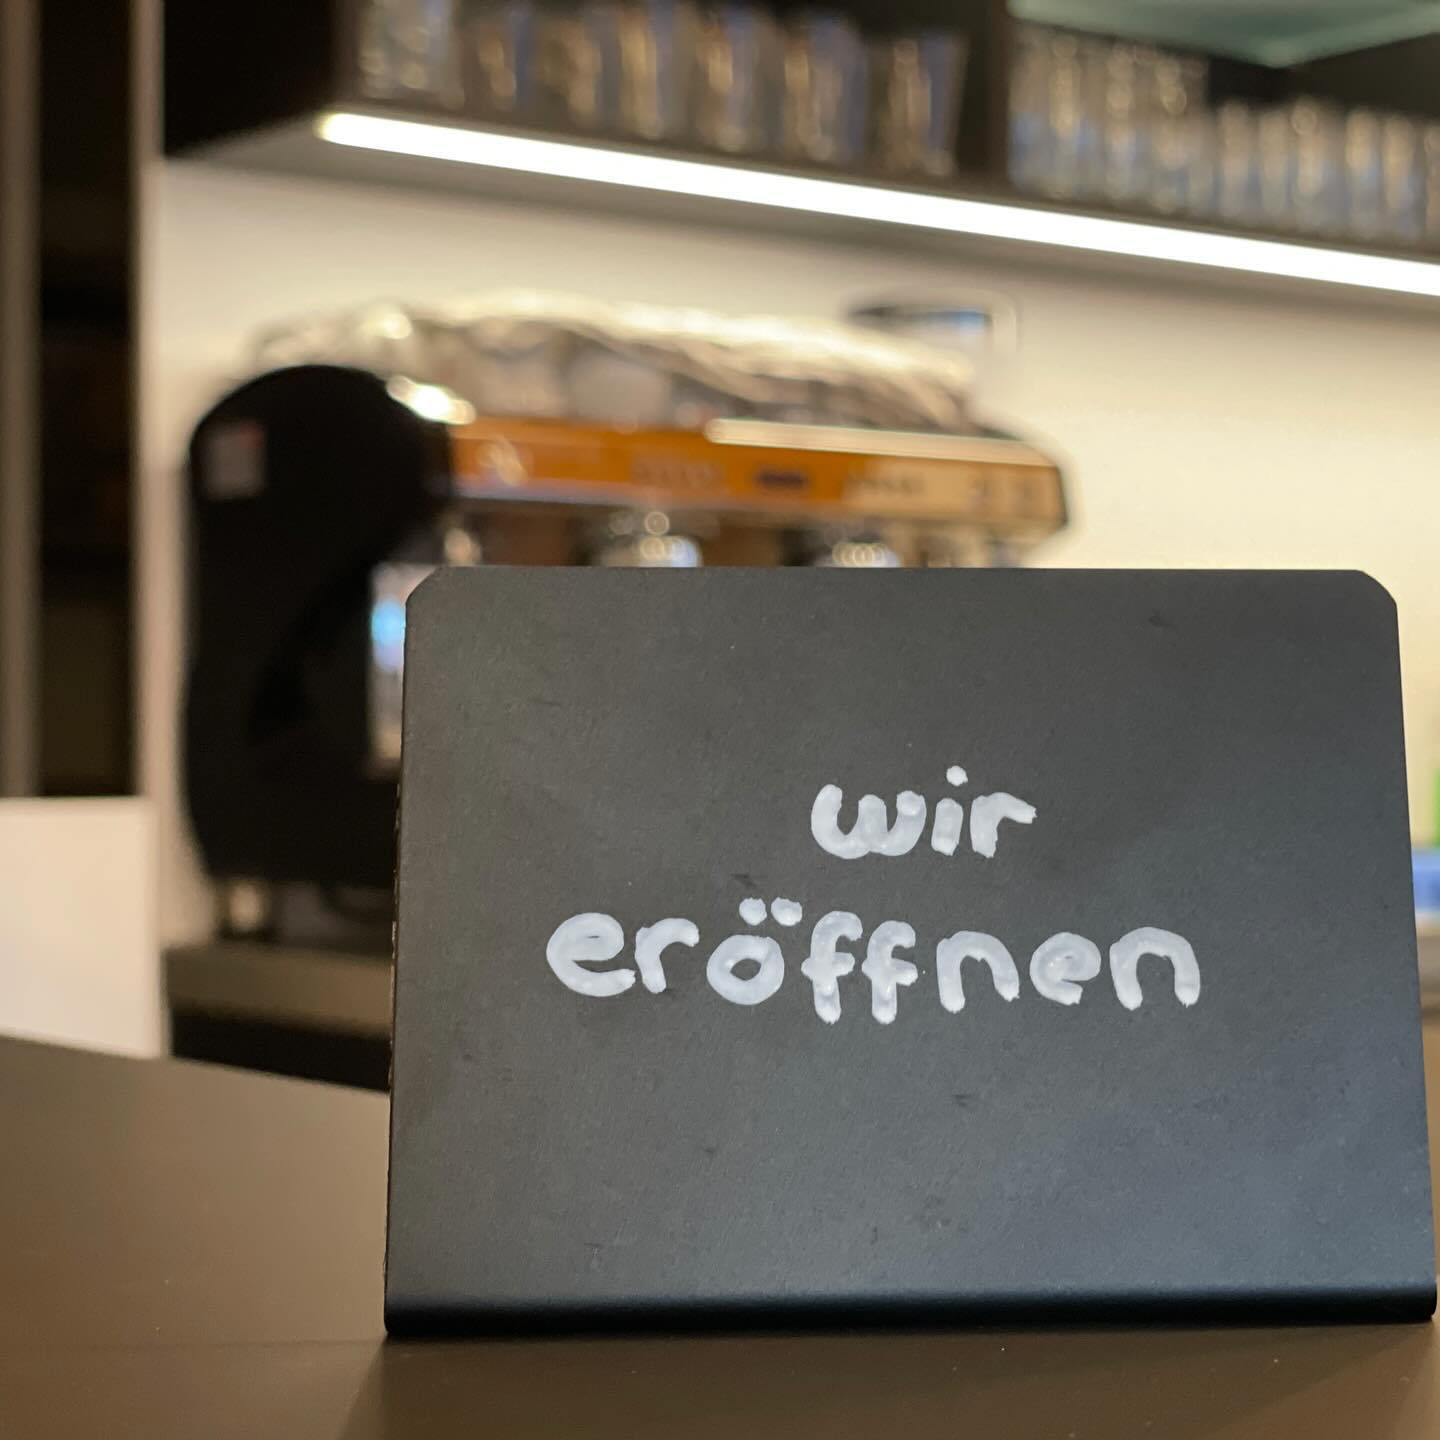 wir
eröffnen